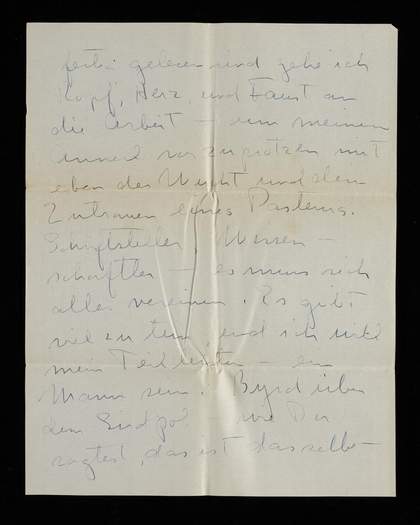 gelesen und gehe ich
Kopf, Herz und Faust an
die Arbeit – um meinen
mit
eben der Wucht und dem
Zutrauen eines Pasteurs.
Schriftsteller, Wissen-
schaftler – es muss sich
alles vereinen. Es gibt
viel zu tun, und ich will
mein Teil – ein
Mann sein. Byrd über
dem Südpol – wie Du
sagtest, das ist dasselbe –